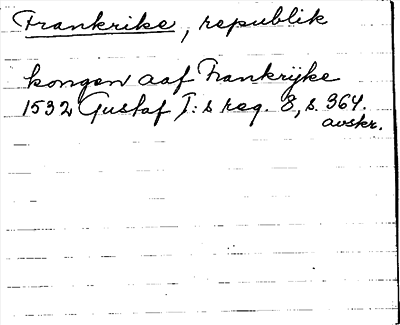 Frankrike, republik
kongen aaf Frankrijke
1532 Gustaf I:s reg. 8, s. 364.
avskr.